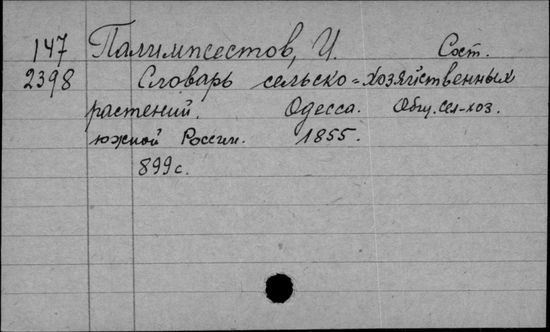 147 Палимпсестов, И. Сост.
2398 Словарь сельско-хозяйственных
растений. Одесса. Общ. сел-хоз.
южной России. 1855.
899 с.